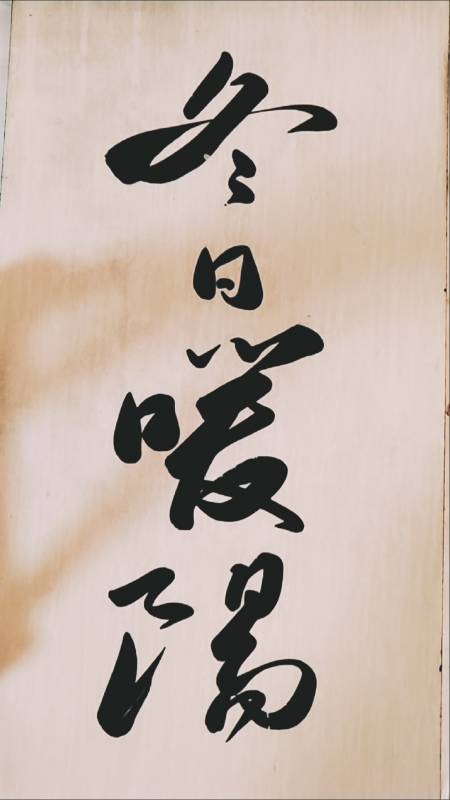 冬日暖陽